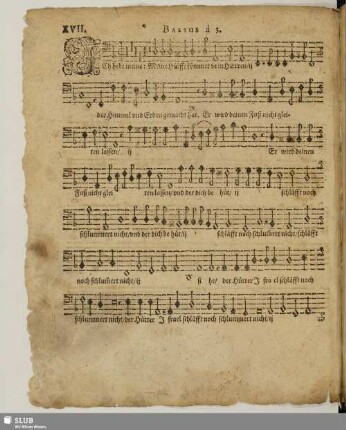 XVII. BASSUS à 5.
Ich hebe meine: Meine Hülffe kömmet vom Herren/ij
der Himmel und Erden gemacht hat, Er wird deinen Fuß nicht glei-
ten lassen/ ij Er wird deinen
Fuß nicht glei ten lassen/ und der dich be hüt/ ij schläfft noch
schlummert nicht/ und der dich be hüt/ ij schläfft noch schlummert nicht/ schläfft
noch schlummert nicht/ij der Hüter J sra el schläfft noch
schlummert nicht/ der Hüter J srael schläfft noch schlummert nicht/ ij
SLUB
Wir führen Wissen.